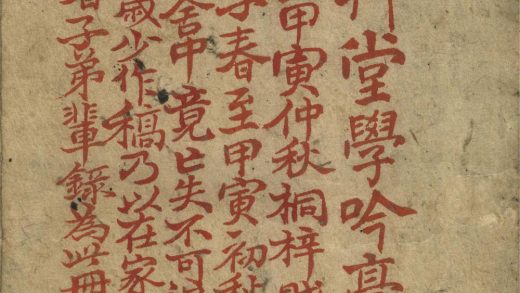 堂學吟亭
甲寅仲秋桐梓
春至甲寅初秋
舍中竟已失不可
歲少作稿乃以在家
子弟輩錄為此冊